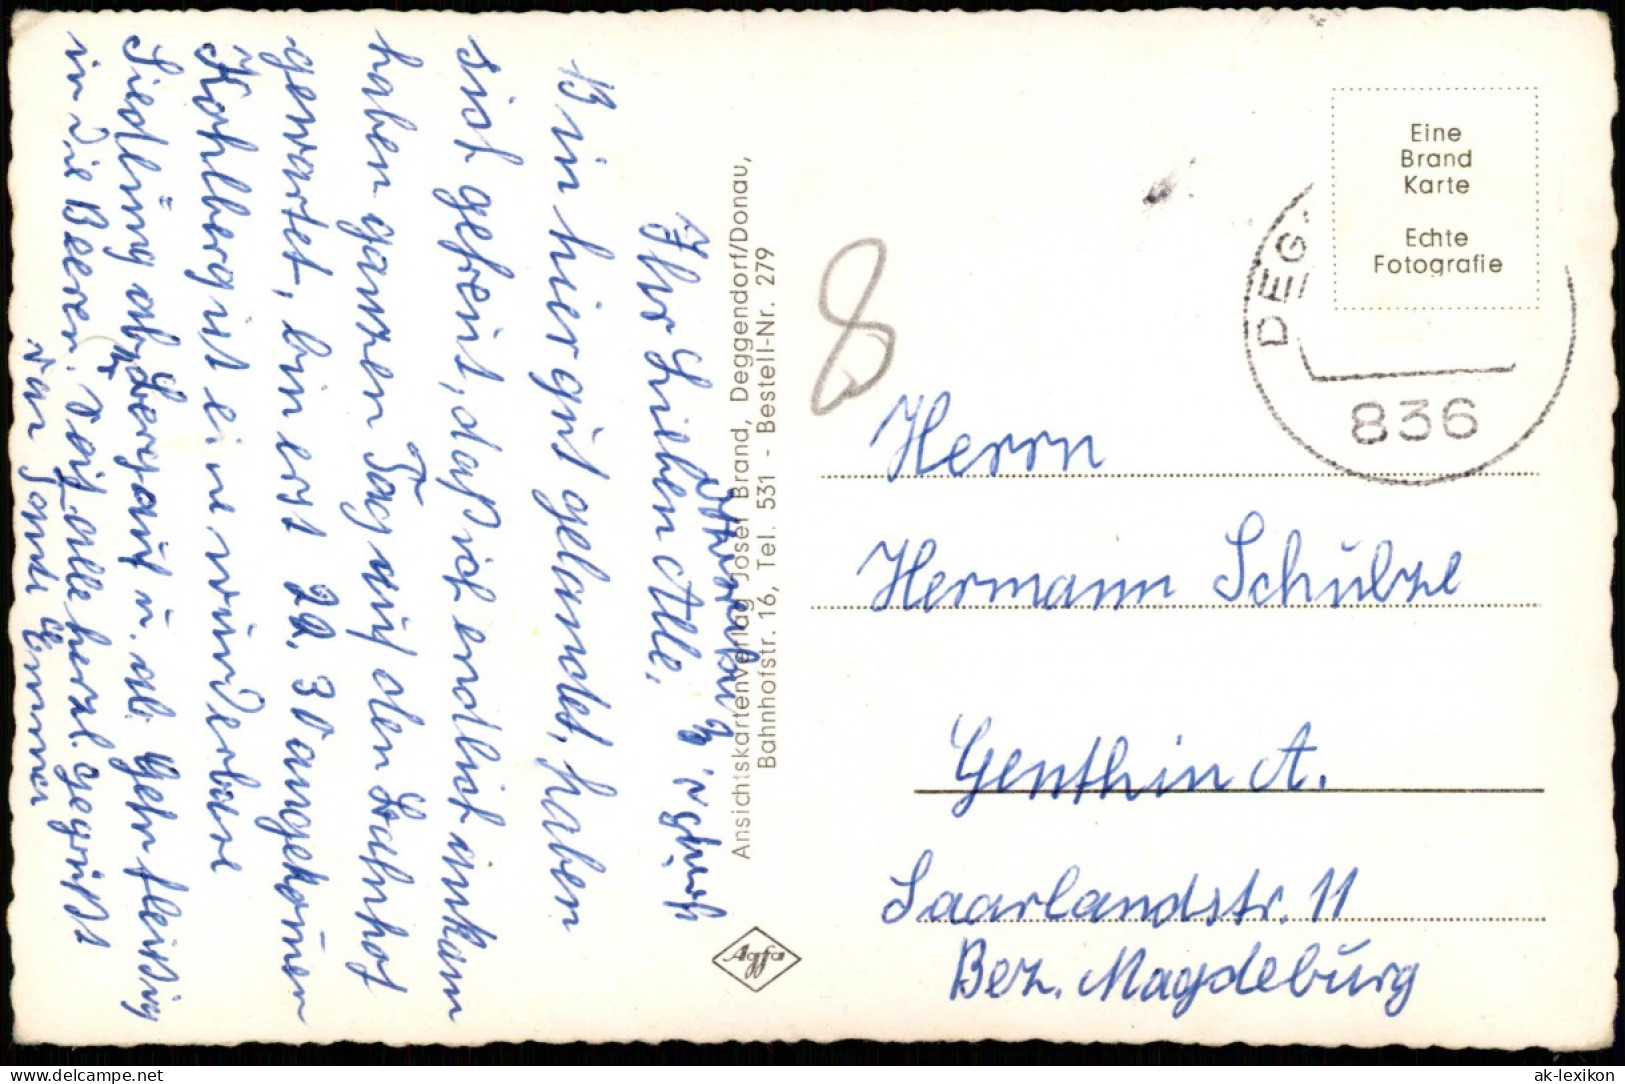 Ihr Lieben Alle,
Bin hier gut gelandet, haben
sich gefreut, daß ich endlich ankam
haben ganzen Tag auf den Bahnhof
gewartet, bin erst 22.30 angekomen
Kohlberg ist eine wunderbare
Siedlung ab u. ab Gehe fleißig
in die Beeren. Seit alle herzl. gegrüßt
von Emma
Ansichtskartenverlag Josef Brand, Deggendorf/Donau,
Bahnhofstr. 16, Tel. 531 - Bestell-Nr. 279
Agfa
8
Eine
Brand
Karte
Echte
Fotografie
DEG
836
Herrn
Hermann Schulze
Genthin A.
Saarlandstr. 11
Bez. Magdeburg
ak-lexikon
www.delcampe.net